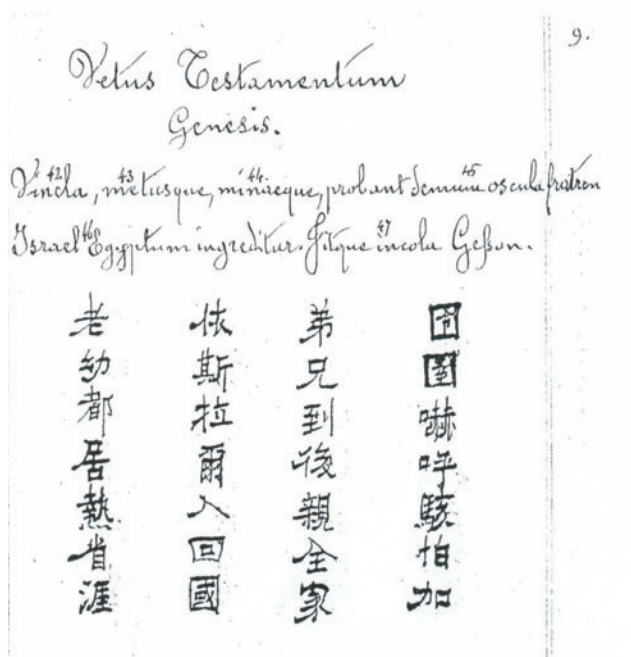 9.
Vetus Testamentum
Genesis.
42 43 44 45
Vincla, metusque, minaeque, probant demum oscula fratren
46 47
Israel Egyptum ingreditur. Fitque incola Geßon.
囹圄嚇呼駭怕加
弟兄到後親全家
依斯拉爾入回國
老幼都居熱省涯